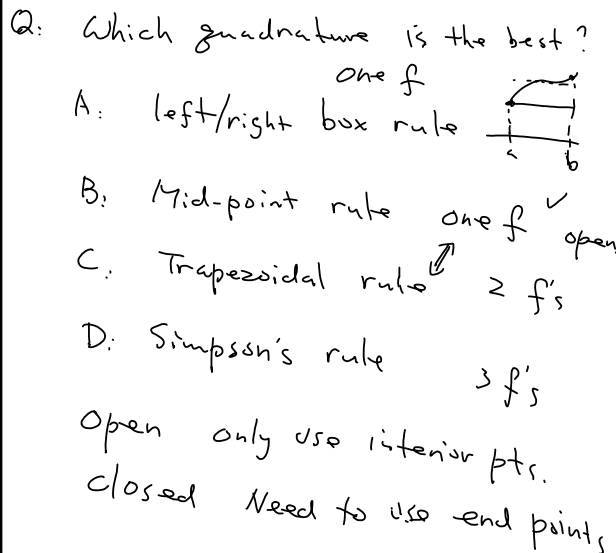 Q: Which quadrature is the best?
one f
A: left/right box rule
a b
B: Mid-point rule one f ✓ open
C. Trapezoidal rule 2 f's
D: Simpson's rule 3 f's
open only use interior pts.
closed Need to use end points